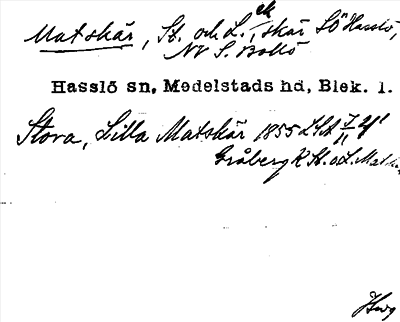 Matskär, St. och L., ek skär SÖ Hasslö,
NV S. Bollö
Hasslö sn, Medelstads hd, Blek. l.
Stora, Lilla Matskär 1855 LSA
Gråberg K St. o L. Matskär